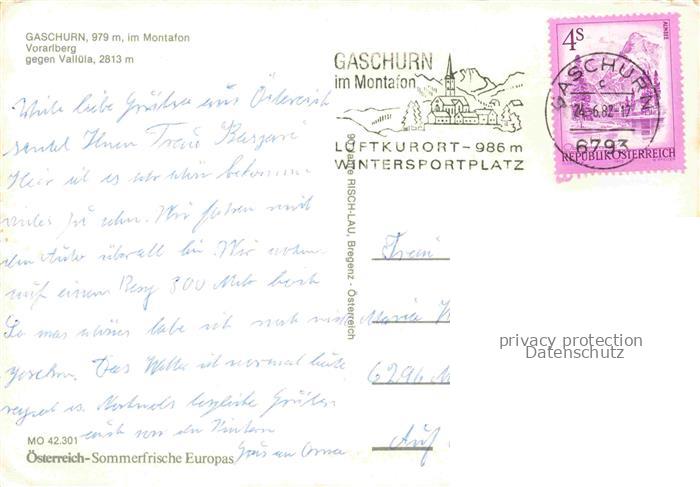 GASCHURN, 979 m, im Montafon
Vorarlberg
gegen Vallüla, 2813 m
Viele liebe Grüße aus Österreich
sendet Ihnen Frau
Hier ist es sehr schön
zu sehn. Wir fahren mit
dem Auto überall hin. Wir
auf einem Berg 300 hoch
So was schönes habe ich noch nie
gesehen. Das Wetter ist normal heute
regnet es. Nochmals herzliche Grüße
auch von den Kindern
MO 42.301
Österreich-Sommerfrische Europas
GASCHURN
im Montafon
LUFTKURORT - 986 m
WINTERSPORTPLATZ
4S
ALMSEE
REPUBLIK ÖSTERREICH
GASCHURN
24.-6.82-17
6793
RISCH-LAU, Bregenz - Österreich
Frau
Maria
6296
Auf
privacy protection
Datenschutz